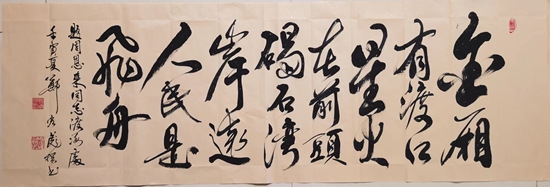 金厢
有渡口
星火
在前頭
碣石湾
岸遠
人民是
飛舟
題周恩来同志渡海處
壬寅夏鄭